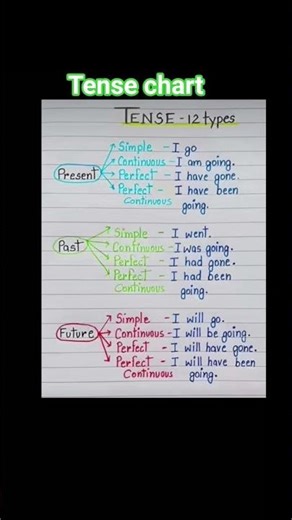 Tense chart
TENSE - 12 types
Present
Simple - I go
Continuous - I am going.
Perfect - I have gone.
Perfect - I have been
Continuous going.
Past
Simple - I went.
Continuous - I was going.
Perfect - I had gone.
Perfect - I had been
Continuous going.
Future
Simple - I will go.
Continuous - I will be going.
Perfect - I will have gone.
Perfect - I will have been
Continuous going.